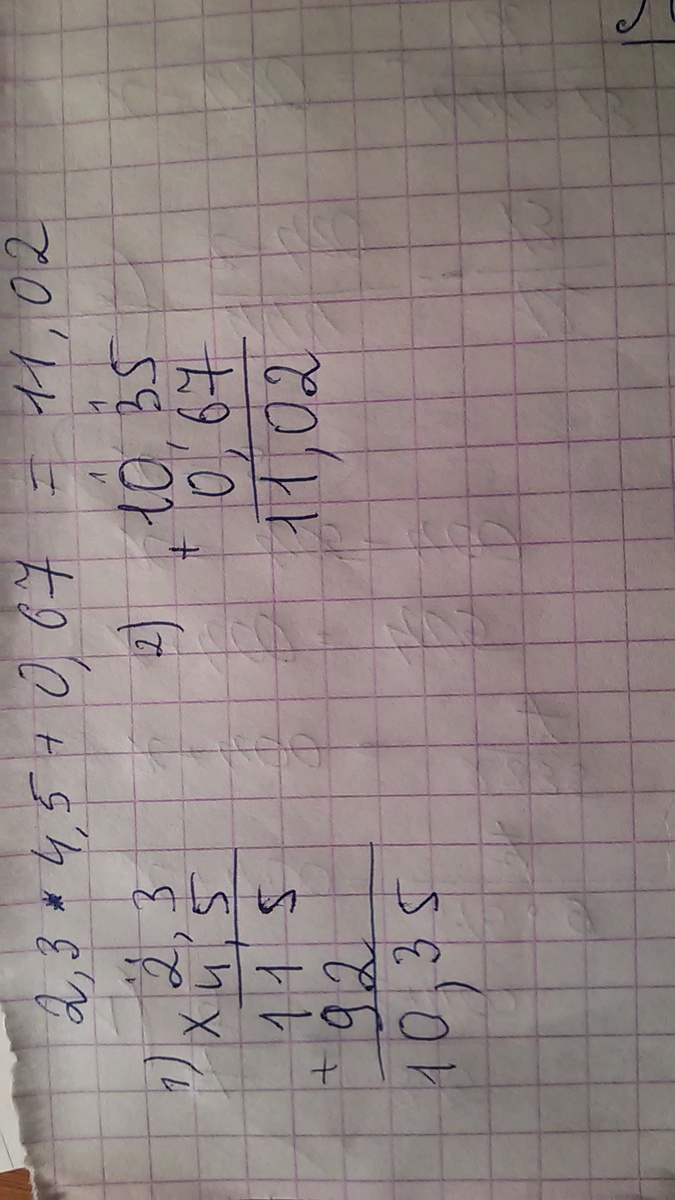 2,3 * 4,5 + 0,67 = 11,02
1) 2,3
× 4,5
11 5
+ 92
10,35
2) + 10,35
0,67
11,02